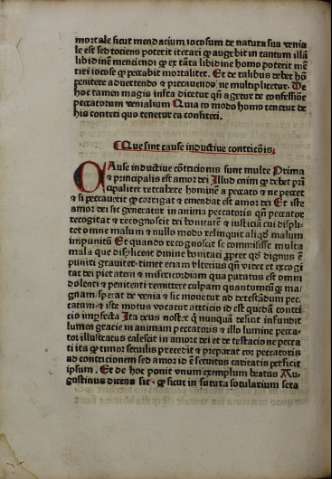 mortale sicut mendacium iocosum de natura sua venia
le est sed tociens poterit iterari ꝙ augebit in tantum illā
libidinē menciendi ꝙ ex tāta libidine homo poterit mē
tiri iocose ꝙ peccabit mortaliter. Et de talibus debet hō
penitere aduertendo et precauendo ne multiplicetur. De
hoc tamen magis infra dicetur qn̄ agetur de confessione
peccatorum venialium Quia eo modo homo tenetur de
his conteri quo tenetur ea confiteri.
Que sint cause inductiue contricōis.
CAuse inductiue cōtricionis sunt multe Prima
et principalis est amor dei Illud enim ꝙ debet prī
cipaliter retrahere hominē a peccato ne peccet
et si peccauerit ꝙ corrigat et emendat est amor dei Et iste
amor dei sic generatur in anima peccatoris qn̄ peccator
recogitat et recognoscit dei bonitatē et iusticiā cui displi
cet omne malum et nullo modo relinquit aliqđ malum
impunitū Et quando recognoscit se commisisse multa
mala que displicent diuine bonitati ꝓpter qđ dignus ē
puniri grauiter timet
dei pietatem et misericordiam qua paratus est omni
dolenti et penitenti remittere culpam quantūcūqꝫ ma
gnam sperat de venia et sic mouetur ad detestādum pec
catum et iste motus vocatur attricio id est quedā contri
cio imperfecta Ita deus nostr̄
lumen gracie in animam peccatoris et illo lumine pecca
tor illustratus calescit in amore dei et detestacio ne pecca
ti ita ꝙ timor seruilis precedit et preparat cor peccatoris
ad contricionem sed amor id ē feruor caritatis perficit
ipsum. Et de hoc ponit vnum exemplum beatus Au
gustinus dicens sic. ꝙ sicut in sutura sotularium seta